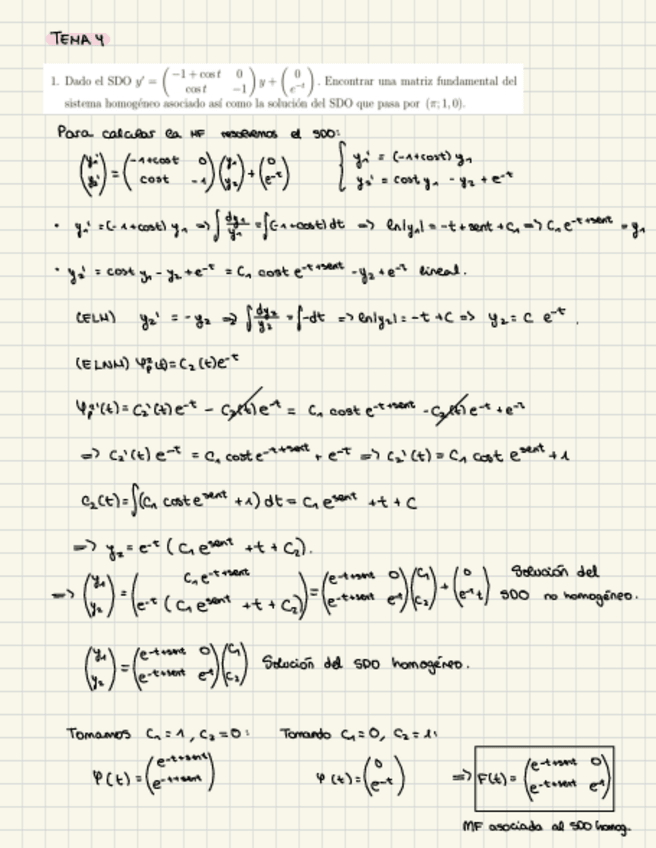 TEMA 4
1. Dado el SDO y' = (-1 + cos t 0; cos t -1) y + (0; e^-t). Encontrar una matriz fundamental del
sistema homogéneo asociado así como la solución del SDO que pasa por (π; 1, 0).
Para calcular la MF resolvemos el SDO:
(y₁'; y₂') = (-1+cost 0; cost -1)(y₁; y₂) + (0; e^-t) { y₁' = (-1+cost) y₁
y₂' = cost y₁ - y₂ + e^-t
• y₁' = (-1+cost) y₁ => ∫ dy₁/y₁ = ∫(-1+cost) dt => ln|y₁| = -t + sent + C₁ => C₁ e^(-t+sent) = y₁
• y₂' = cost y₁ - y₂ + e^-t = C₁ cost e^(-t+sent) - y₂ + e^-t lineal.
(ELH) y₂' = -y₂ => ∫ dy₂/y₂ = ∫-dt => ln|y₂| = -t + C => y₂ = C e^-t.
(ELNH) φp²(t) = C₂(t) e^-t
φp²'(t) = C₂'(t) e^-t - C₂(t) e^-t = C₁ cost e^(-t+sent) - C₂(t) e^-t + e^-t
=> C₂'(t) e^-t = C₁ cost e^(-t+sent) + e^-t => C₂'(t) = C₁ cost e^sent + 1
C₂(t) = ∫(C₁ cost e^sent + 1) dt = C₁ e^sent + t + C
=> y₂ = e^-t (C₁ e^sent + t + C₂).
=> (y₁; y₂) = (C₁ e^(-t+sent); e^-t (C₁ e^sent + t + C₂)) = (e^(-t+sent) 0; e^(-t+sent) e^-t)(C₁; C₂) + (0; e^-t t) Solución del
SDO no homogéneo.
(y₁; y₂) = (e^(-t+sent) 0; e^(-t+sent) e^-t)(C₁; C₂) Solución del SDO homogéneo.
Tomamos C₁ = 1, C₂ = 0: Tomando C₁ = 0, C₂ = 1:
φ(t) = (e^(-t+sent); e^(-t+sent)) φ(t) = (0; e^-t) => F(t) = (e^(-t+sent) 0; e^(-t+sent) e^-t)
MF asociada al SDO homog.